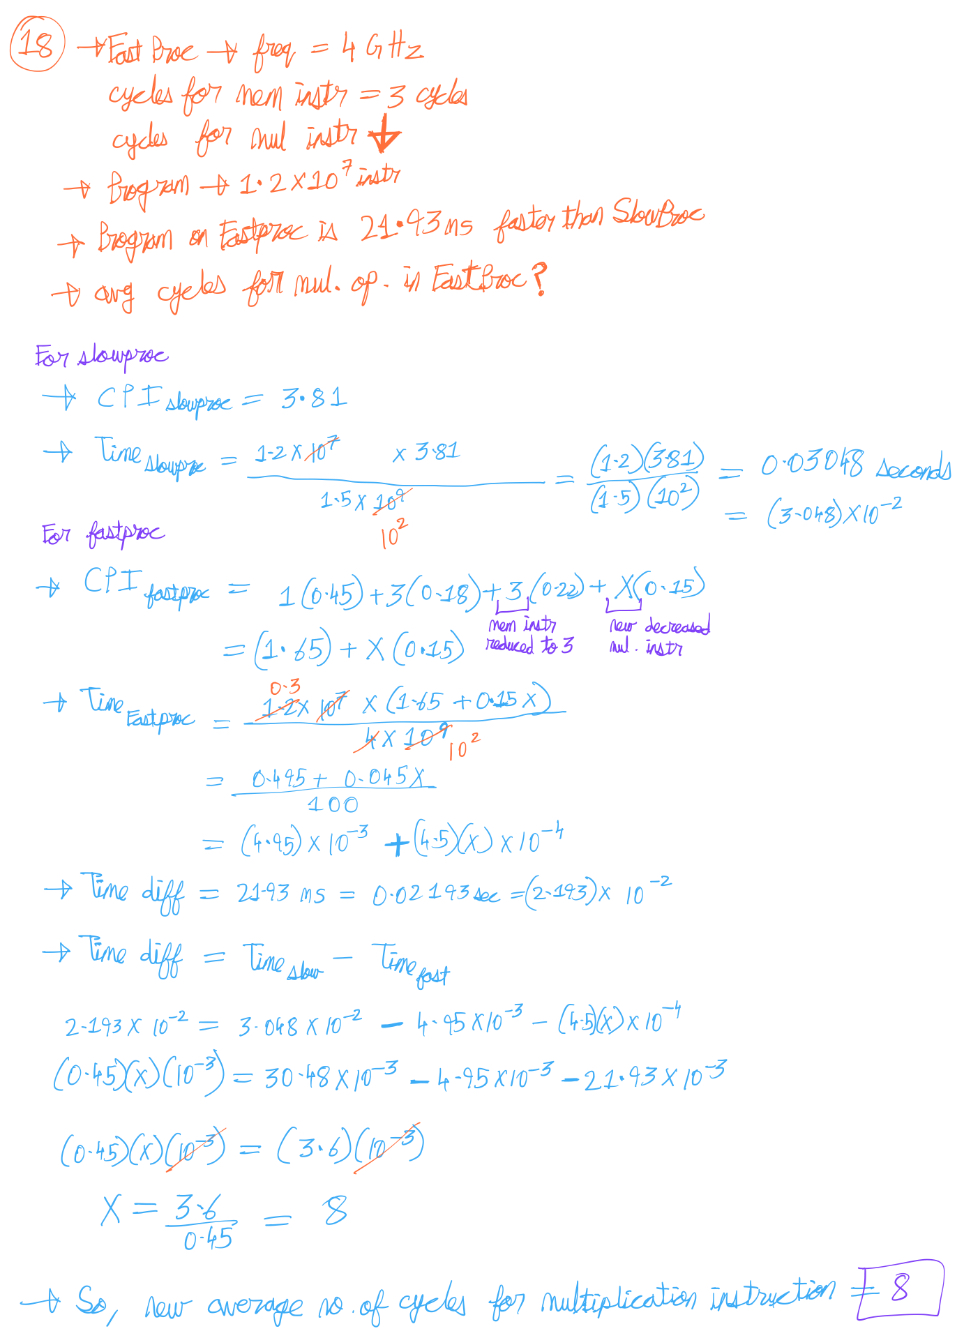 18 → FastProc → freq = 4 GHz
cycles for mem instr = 3 cycles
cycles for mul instr ↓
→ Program → 1.2 × 10^7 instr
→ Program on Fastproc is 21.93 ms faster than SlowProc
→ avg cycles for mul. op. in FastProc?
For slowproc
→ CPI slowproc = 3.81
→ Time slowproc = (1.2 × 10^7 × 3.81) / (1.5 × 10^9) = (1.2)(3.81) / (1.5)(10^2) = 0.03048 seconds
10^2
= (3.048) × 10^-2
For fastproc
→ CPI fastproc = 1(0.45) + 3(0.18) + 3(0.22) + X(0.15)
mem instr reduced to 3
new decreased mul. instr
= (1.65) + X(0.15)
→ Time Fastproc = (1.2 × 10^7 × (1.65 + 0.15X)) / (4 × 10^9)
0.3
10^2
= (0.495 + 0.045X) / 100
= (4.95) × 10^-3 + (4.5)(X) × 10^-4
→ Time diff = 21.93 ms = 0.02193 sec = (2.193) × 10^-2
→ Time diff = Time slow − Time fast
2.193 × 10^-2 = 3.048 × 10^-2 − 4.95 × 10^-3 − (4.5)(X) × 10^-4
(0.45)(X)(10^-3) = 30.48 × 10^-3 − 4.95 × 10^-3 − 21.93 × 10^-3
(0.45)(X)(10^-3) = (3.6)(10^-3)
X = 3.6 / 0.45 = 8
→ So, new average no. of cycles for multiplication instruction = 8